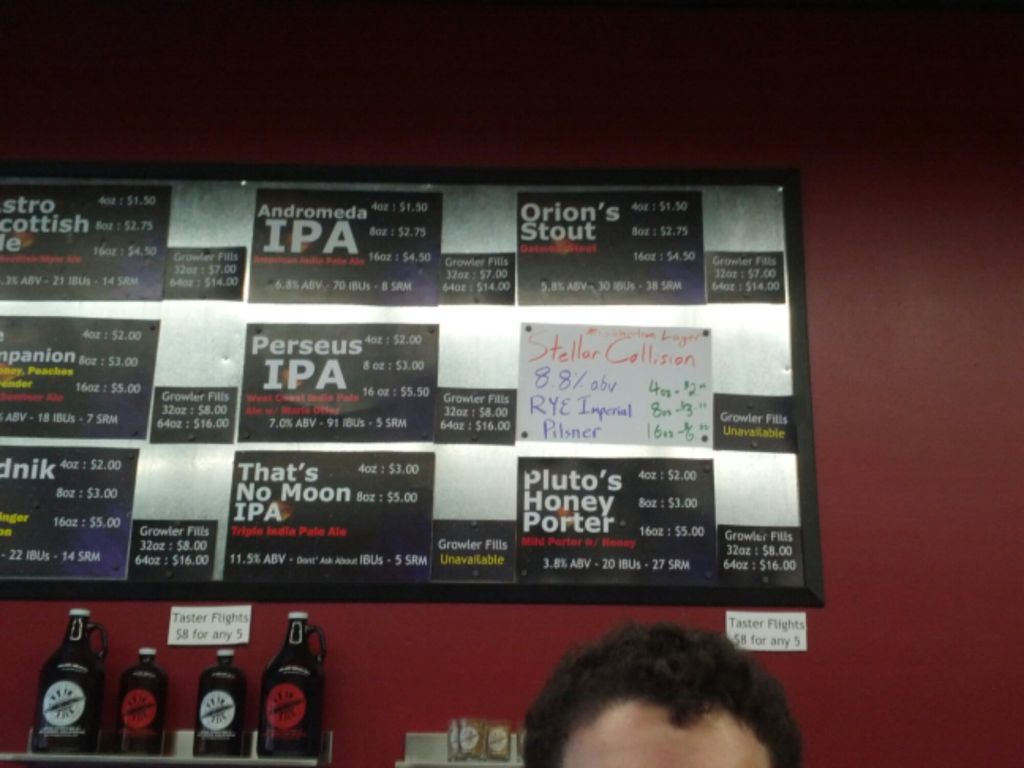 stro
cottish
le
4oz : $1.50
8oz : $2.75
16oz : $4.50
Scottish Style Ale
.3% ABV - 21 IBUs - 14 SRM
Growler Fills
32oz : $7.00
64oz : $14.00
Andromeda
IPA
4oz : $1.50
8oz : $2.75
16oz : $4.50
American India Pale Ale
6.8% ABV - 70 IBUs - 8 SRM
Growler Fills
32oz : $7.00
64oz : $14.00
Orion's
Stout
4oz : $1.50
8oz : $2.75
16oz : $4.50
Oatmeal Stout
5.8% ABV - 30 IBUs - 38 SRM
Growler Fills
32oz : $7.00
64oz : $14.00
e
mpanion
4oz : $2.00
8oz : $3.00
16oz : $5.00
oney, Peaches
ender
Summer Ale
ABV - 18 IBUs - 7 SRM
Growler Fills
32oz : $8.00
64oz : $16.00
Perseus
IPA
4oz : $2.00
8 oz : $3.00
16 oz : $5.50
West Coast India Pale
Ale w/ Maris Otter
7.0% ABV - 91 IBUs - 5 SRM
Growler Fills
32oz : $8.00
64oz : $16.00
Lager
Stellar Collision
8.8% abv
RYE Imperial
Pilsner
4oz - $2
8oz - $3
16oz - $6
Growler Fills
Unavailable
dnik
4oz : $2.00
8oz : $3.00
16oz : $5.00
inger
on
- 22 IBUs - 14 SRM
Growler Fills
32oz : $8.00
64oz : $16.00
That's
No Moon
IPA
4oz : $3.00
8oz : $5.00
Triple India Pale Ale
11.5% ABV - Dont' Ask About IBUs - 5 SRM
Growler Fills
Unavailable
Pluto's
Honey
Porter
4oz : $2.00
8oz : $3.00
16oz : $5.00
Mild Porter w/ Honey
3.8% ABV - 20 IBUs - 27 SRM
Growler Fills
32oz : $8.00
64oz : $16.00
Taster Flights
$8 for any 5
Taster Flights
$8 for any 5